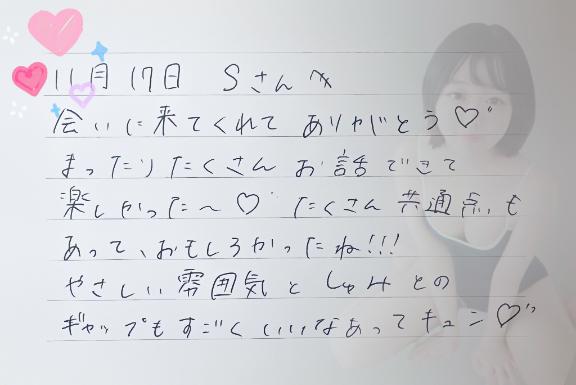 11月17日 Sさんへ
会いに来てくれて ありがとう♡
まったりたくさん お話できて
楽しかった〜♡ たくさん 共通点も
あって、おもしろかったね!!!
やさしい雰囲気と しゅみとの
ギャップもすごく いいなあってキュン♡